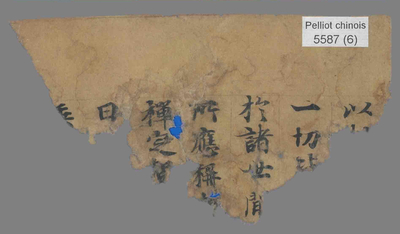 Pelliot chinois
5587 (6)
以
一切
於諸世
所應稱
禪定
日